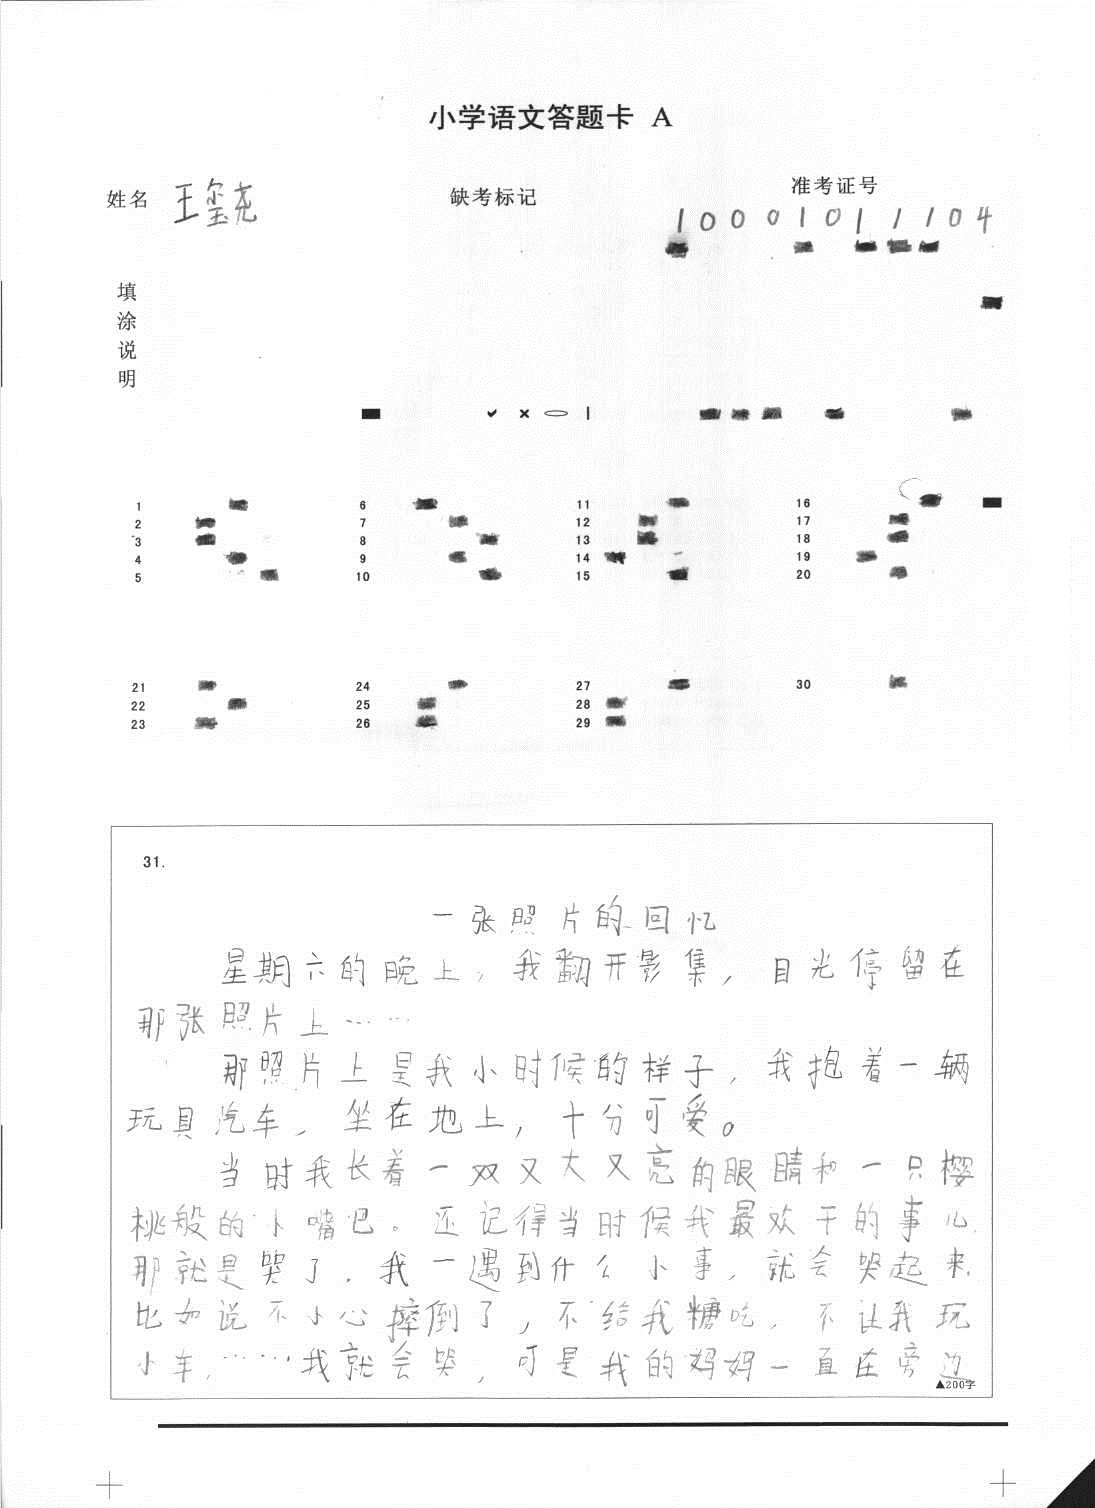 小学语文答题卡 A
姓名 王玺尧 缺考标记 准考证号
1 0 0 0 1 0 1 1 1 0 4
填涂说明
1 6 11 16
2 7 12 17
3 8 13 18
4 9 14 19
5 10 15 20
21 24 27 30
22 25 28
23 26 29
31.
一张照片的回忆
星期六的晚上，我翻开影集，目光停留在
那张照片上……
那照片上是我小时候的样子，我抱着一辆
玩具汽车，坐在地上，十分可爱。
当时我长着一双又大又亮的眼睛和一只樱
桃般的小嘴巴。还记得当时候我最欢干的事儿
那就是哭了．我一遇到什么小事，就会哭起来．
比如说不小心摔倒了，不给我糖吃，不让我玩
小车，……我就会哭，可是我的妈妈一直在旁边
▲200字